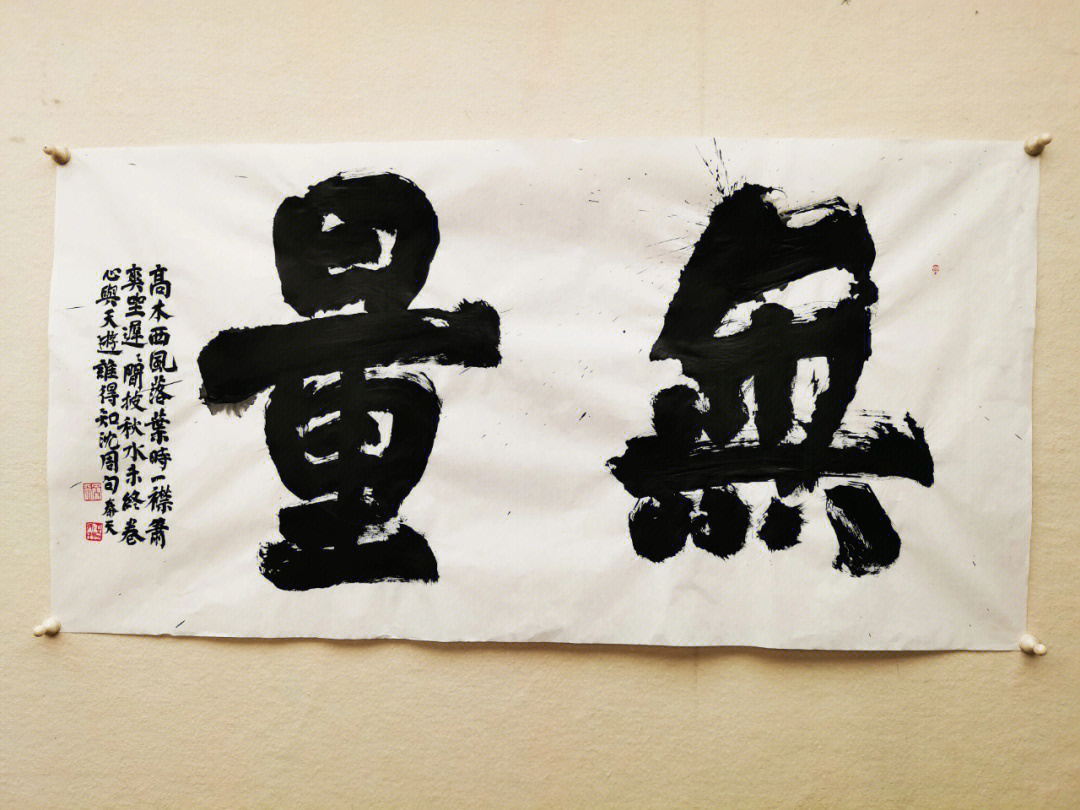 無量
高木西風落葉時一襟蕭
爽坐遲遲閒披秋水未終卷
心與天遊誰得知沈周句
春天